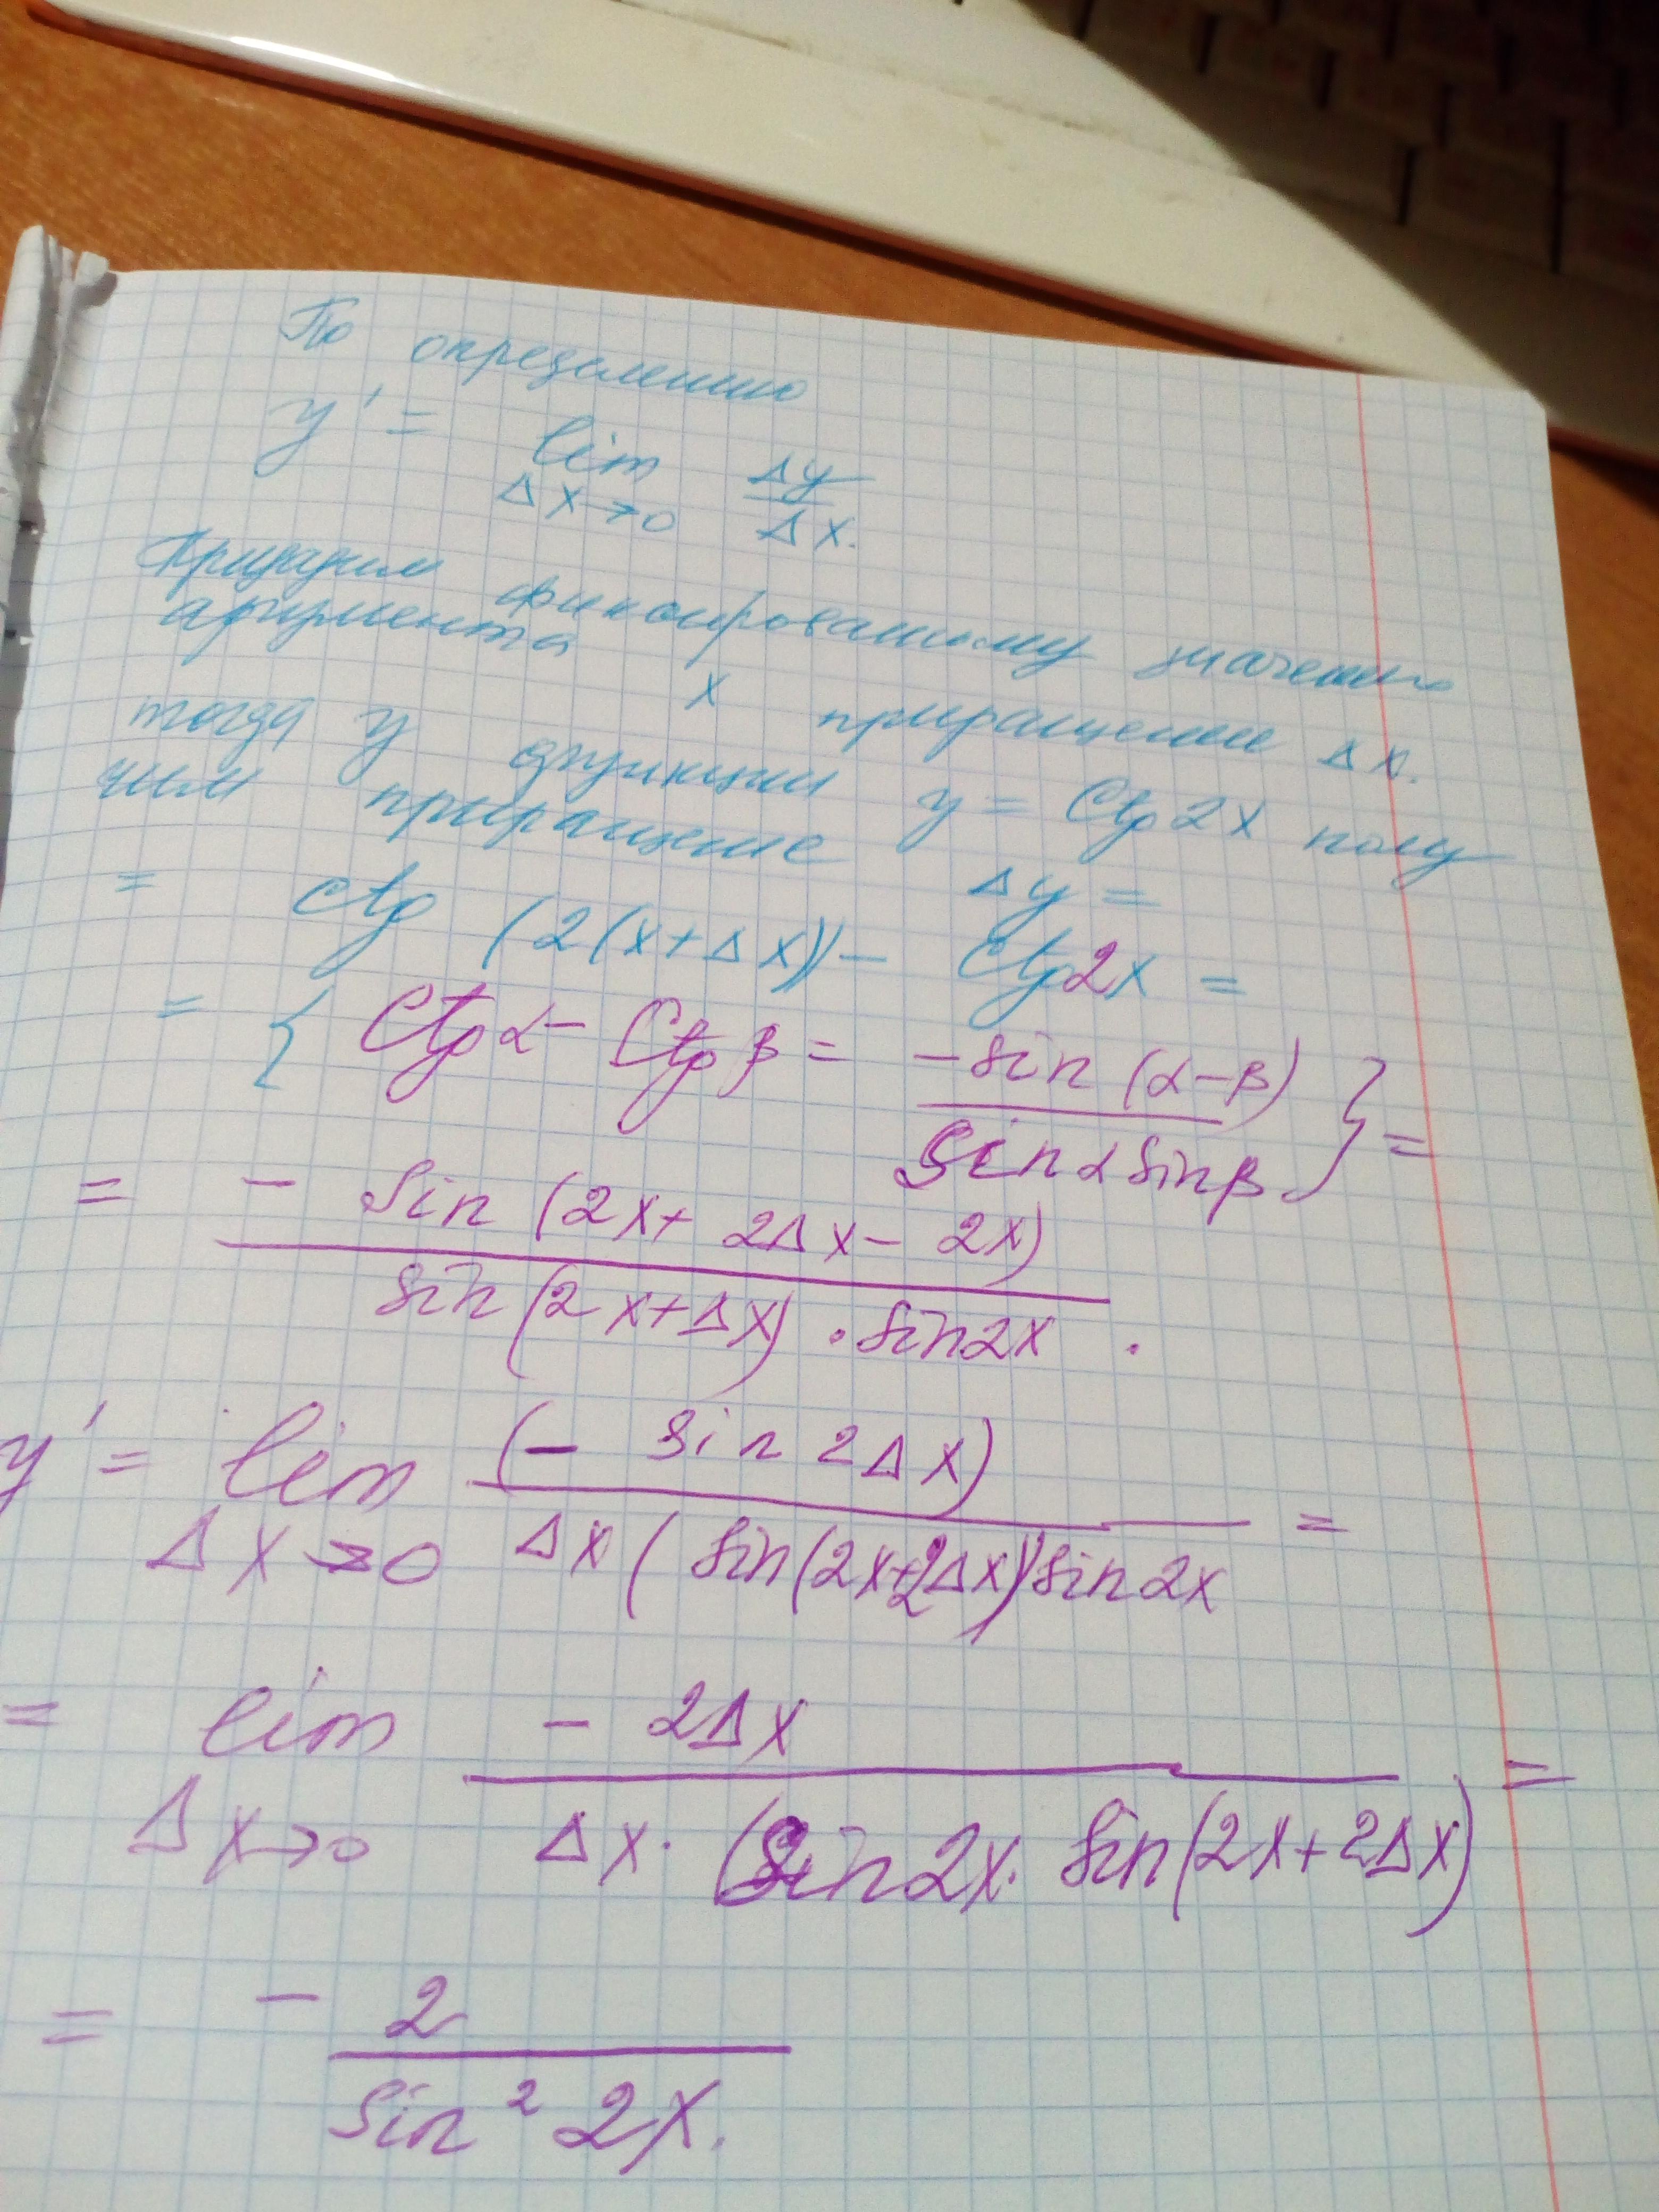 По определению
y' = lim Δy/Δx.
Δx→0
Придадим фиксированному значению
аргумента x приращение Δx.
тогда у функции y = ctg 2x полу
чим приращение Δy =
= ctg (2(x+Δx)) - ctg 2x =
= { ctg α - ctg β = -sin (α-β) / sin α sin β } =
= - sin (2x + 2Δx - 2x) / sin (2x+Δx) · sin 2x .
y' = lim (- sin 2Δx) / Δx ( sin(2x+2Δx) sin 2x =
Δx→0
= lim - 2Δx / Δx · (sin 2x · sin(2x+2Δx) =
Δx→0
= - 2 / sin² 2x.